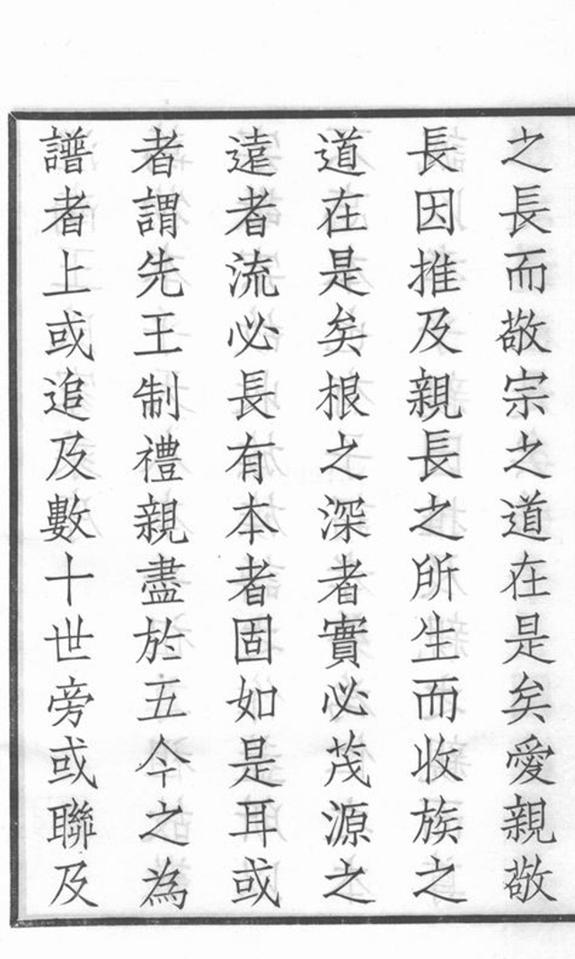 之長而敬宗之道在是矣愛親敬
長因推及親長之所生而收族之
道在是矣根之深者實必茂源之
遠者流必長有本者固如是耳或
者謂先王制禮親盡於五今之為
譜者上或追及數十世旁或聯及